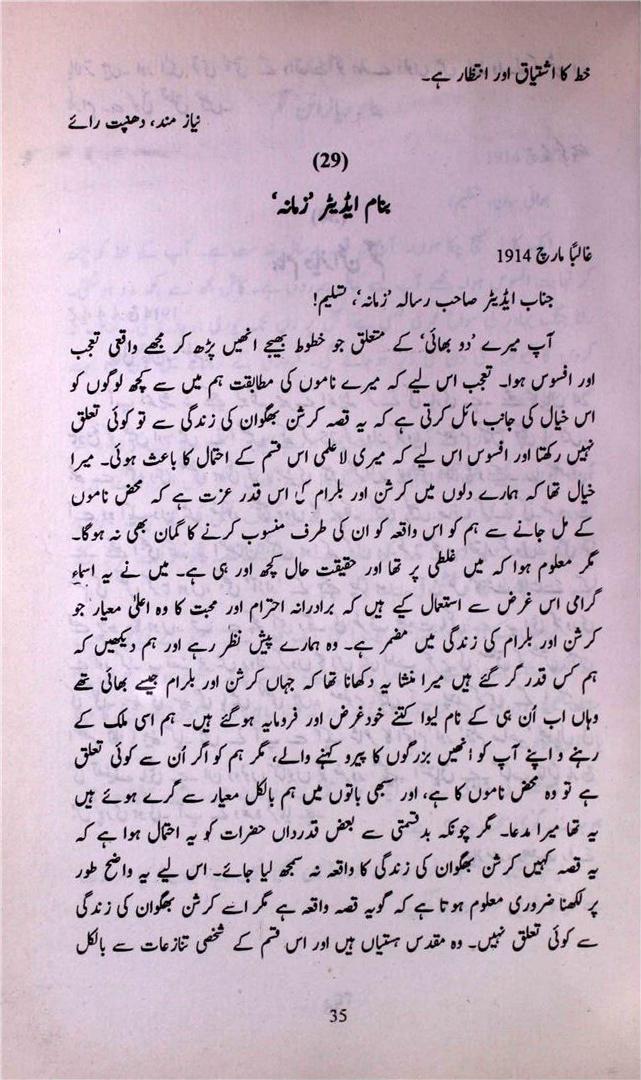 خط کا اشتیاق اور انتظار ہے۔
نیاز مند، دھنپت رائے
(29)
بنام ایڈیٹر ’زمانہ‘
غالباً مارچ 1914
جناب ایڈیٹر صاحب رسالہ ’زمانہ‘، تسلیم!
آپ میرے ’دو بھائی‘ کے متعلق جو خطوط بھیجے انھیں پڑھ کر مجھے واقعی تعجب
اور افسوس ہوا۔ تعجب اس لیے کہ میرے ناموں کی مطابقت ہم میں سے کچھ لوگوں کو
اس خیال کی جانب مائل کرتی ہے کہ یہ قصہ کرشن بھگوان کی زندگی سے تو کوئی تعلق
نہیں رکھتا اور افسوس اس لیے کہ میری لاعلمی اس قسم کے احتمال کا باعث ہوئی۔ میرا
خیال تھا کہ ہمارے دلوں میں کرشن اور بلرام کی اس قدر عزت ہے کہ محض ناموں
کے مل جانے سے ہم کو اس واقعہ کو ان کی طرف منسوب کرنے کا گمان بھی نہ ہوگا۔
مگر معلوم ہوا کہ میں غلطی پر تھا اور حقیقت حال کچھ اور ہی ہے۔ میں نے یہ اسماء
گرامی اس غرض سے استعمال کیے ہیں کہ برادرانہ احترام اور محبت کا وہ اعلیٰ معیار جو
کرشن اور بلرام کی زندگی میں مضمر ہے۔ وہ ہمارے پیش نظر رہے اور ہم دیکھیں کہ
ہم کس قدر گر گئے ہیں میرا منشا یہ دکھانا تھا کہ جہاں کرشن اور بلرام جیسے بھائی تھے
وہاں اب اُن ہی کے نام لیوا کتنے خود غرض اور فرومایہ ہوگئے ہیں۔ ہم اسی ملک کے
رہنے و اپنے آپ کو انھیں بزرگوں کا پیرو کہنے والے، مگر ہم کو اگر اُن سے کوئی تعلق
ہے تو وہ محض ناموں کا ہے، اور سبھی باتوں میں ہم بالکل معیار سے گرے ہوئے ہیں
یہ تھا میرا مدعا۔ مگر چونکہ بدقسمتی سے بعض قدرداں حضرات کو یہ احتمال ہوا ہے کہ
یہ قصہ کہیں کرشن بھگوان کی زندگی کا واقعہ نہ سمجھ لیا جائے۔ اس لیے یہ واضح طور
پر لکھنا ضروری معلوم ہوتا ہے کہ گویہ قصہ واقعہ ہے مگر اسے کرشن بھگوان کی زندگی
سے کوئی تعلق نہیں۔ وہ مقدس ہستیاں ہیں اور اس قسم کے شخصی تنازعات سے بالکل
35